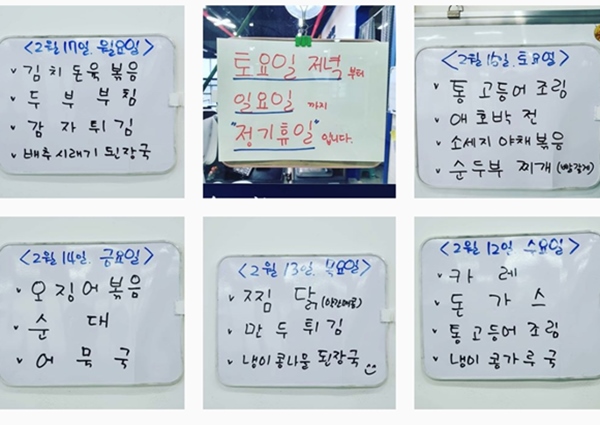 <2월 17일. 월요일>
김치돈육볶음
두부부침
감자튀김
배추시래기 된장국
토요일 저녁 부터
일요일 까지
"정기휴일" 입니다.
<2월 15일. 토요일>
통 고등어 조림
애호박 전
소세지 야채볶음
순두부 찌개 (빨갛게)
<2월 14일. 금요일>
오징어볶음
순대
어묵국
<2월 13일. 목요일>
찜닭
만두튀김
냉이콩나물 된장국
<2월 12일. 수요일>
카레
돈가스
통고등어 조림
냉이 콩가루국